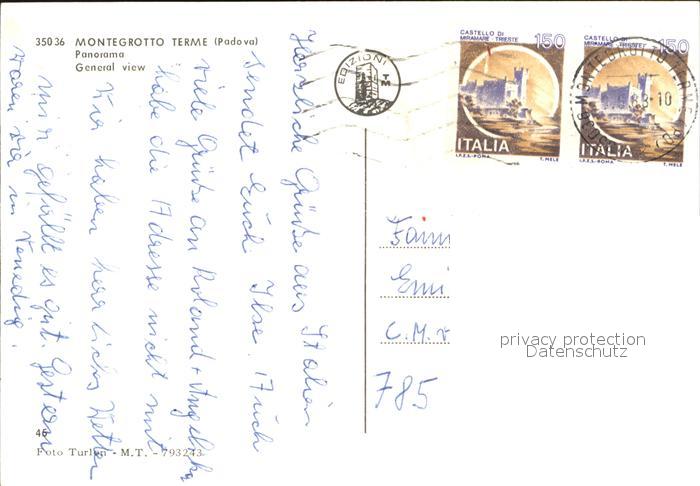 35036 MONTEGROTTO TERME (Padova)
Panorama
General view
EDIZIONI
TM
CASTELLO DI
MIRAMARE - TRIESTE
150
ITALIA
I.P.Z.S.-ROMA T. MELE
CASTELLO DI
MIRAMARE - TRIESTE
150
ITALIA
I.P.Z.S.-ROMA T. MELE
35036 MONTEGROTTO TERME
Herzliche Grüße aus Italien
sendet Euch Ilse. Auch
viele Grüße an Roland + Angelika
habe die Adresse nicht mit
Wir haben herrliches Wetter
mir gefällt es gut. Gestern
waren wir in Venedig.
Fam
Emi
C.M.v
785
privacy protection
Datenschutz
46
Foto Turlon - M.T. - 793243